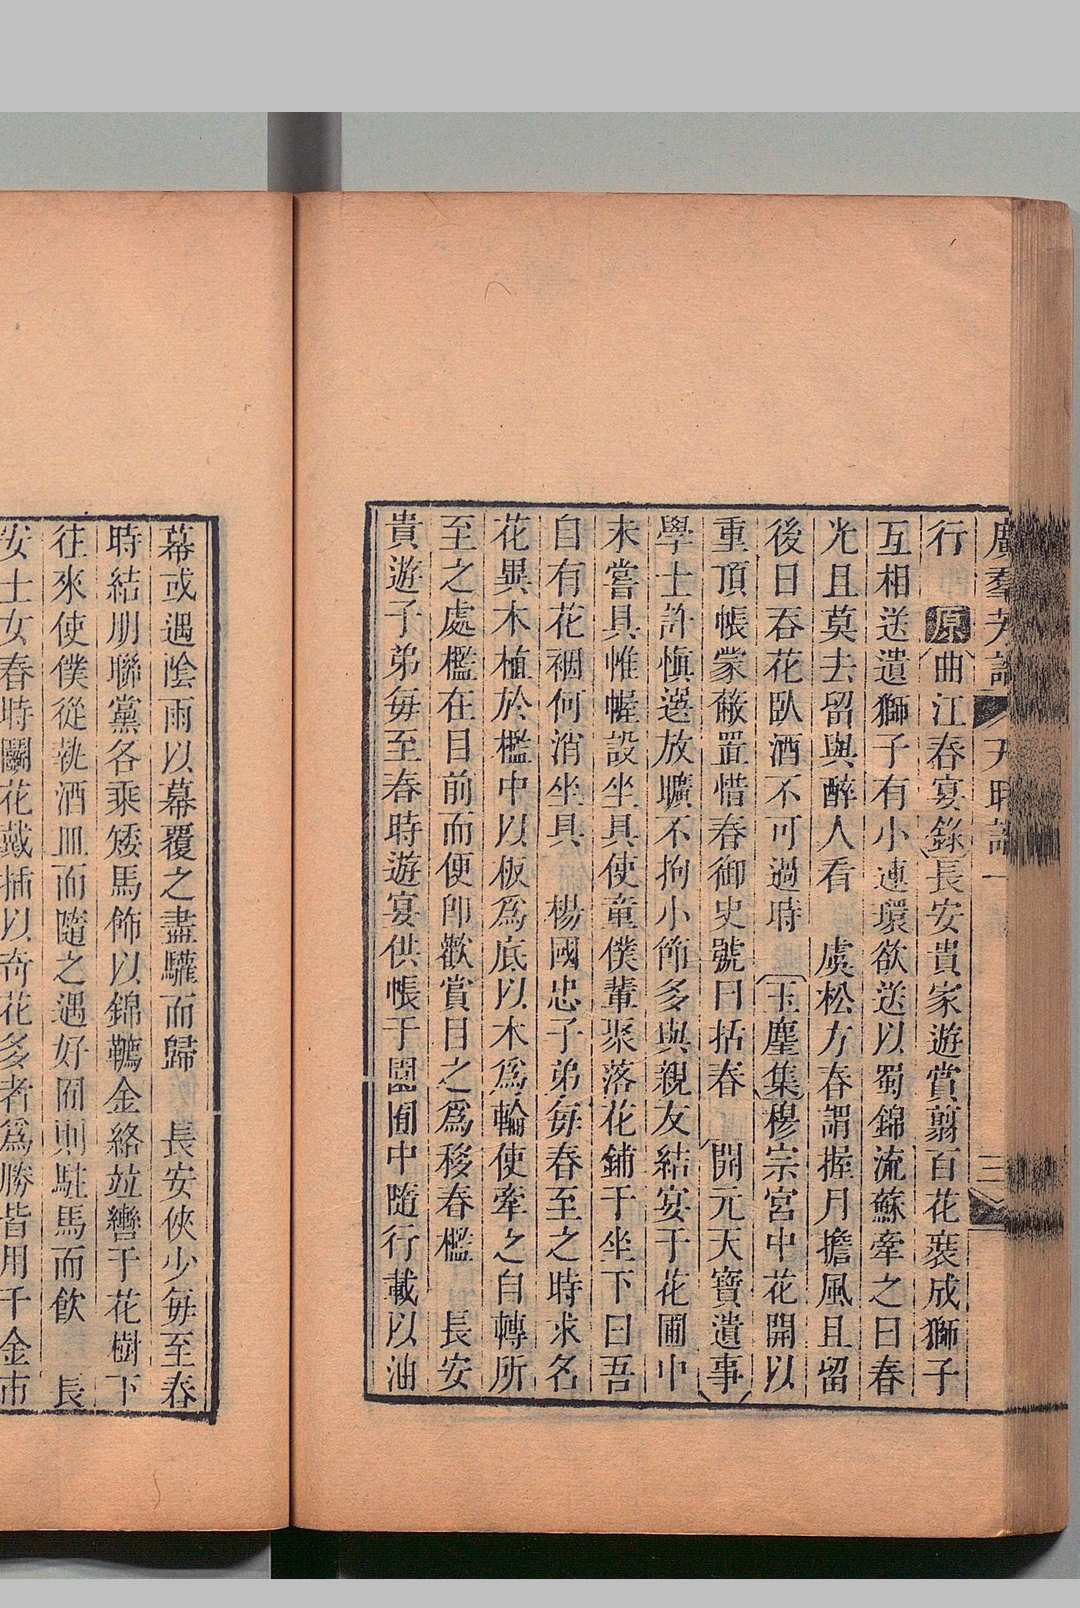 廣羣芳譜 天時譜一 三
行 原 曲江春宴錄長安貴家遊賞翦百花裛成獅子
互相送遺獅子有小連環欲送以蜀錦流蘇牽之曰春
光且莫去留與醉人看 虞松方春謂握月擔風且留
後日吞花臥酒不可過時 玉麈集穆宗宮中花開以
重頂帳蒙蔽置惜春御史號曰括春 開元天寶遺事
學士許愼選放曠不拘小節多與親友結宴于花圃中
未嘗具帷幄設坐具使童僕輩聚落花鋪于坐下曰吾
自有花裀何消坐具 楊國忠子弟每春至之時求名
花異木植於檻中以板爲底以木爲輪使牽之自轉所
至之處檻在目前而便卽歡賞目之爲移春檻 長安
貴遊子弟每至春時遊宴供帳于園圃中隨行載以油
幕或遇陰雨以幕覆之盡驩而歸 長安俠少每至春
時結朋聯黨各乘矮馬飾以錦韉金絡竝轡于花樹下
往來使僕從執酒皿而隨之遇好囿則駐馬而飲 長
安士女春時鬭花戴插以奇花多者爲勝皆用千金市